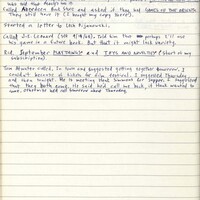 Called Aberdeen Book Store and asked if they had GAMES OF THE
They still have it (I bought my copy there).
Started a letter to Lech Pijanowski.
Called J.S. Leonard (see 8/4/69). Told him that perhaps I'll use
his game in a future book. But that it might lack variety.
Rcd. September PLAYTHINGS and TOYS AND NOVELTIES (start of my
subscription)
Tom Atwater called. In town and suggested getting together tomorrow. I
couldn't because of tickets for film festival. I suggested Thursday
and then tonight. He is meeting that woman for supper. I suggested
that they both come. He said he'd call me back if they wanted to
come. Otherwise he'd call tomorrow about Thursday.